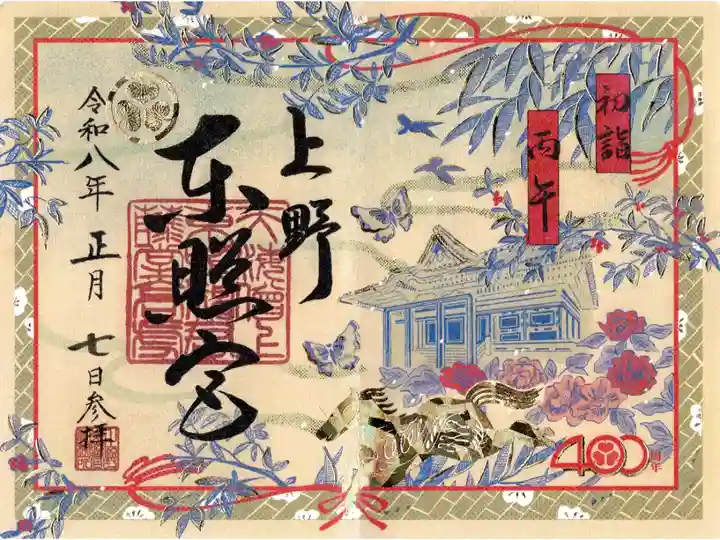 初詣
丙午
上野
東照宮
令和八年 正月 七日参拝
400
周年